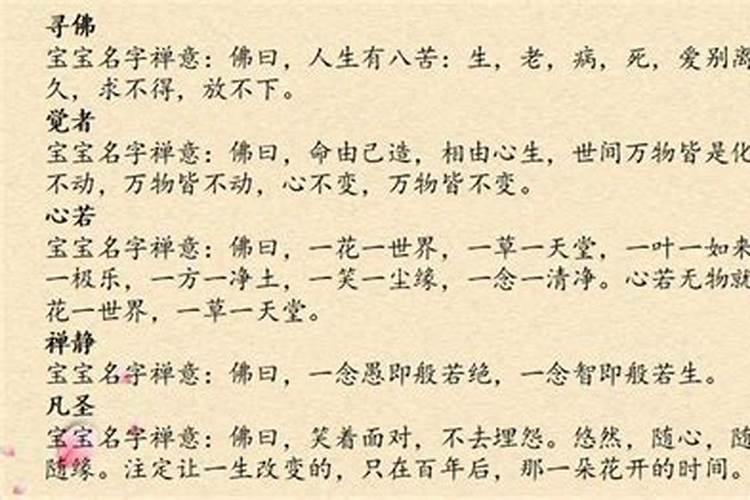 寻佛
宝宝名字禅意：佛曰，人生有八苦：生，老，病，死，爱别离
久，求不得，放不下。
觉者
宝宝名字禅意：佛曰，命由己造，相由心生，世间万物皆是化
不动，万物皆不动，心不变，万物皆不变。
心若
宝宝名字禅意：佛曰，一花一世界，一草一天堂，一叶一如来
一极乐，一方一净土，一笑一尘缘，一念一清净。心若无物就
花一世界，一草一天堂。
禅静
宝宝名字禅意：佛曰，一念愚即般若绝，一念智即般若生。
凡圣
宝宝名字禅意：佛曰，笑着面对，不去埋怨。悠然，随心，随
随缘。注定让一生改变的，只在百年后，那一朵花开的时间。